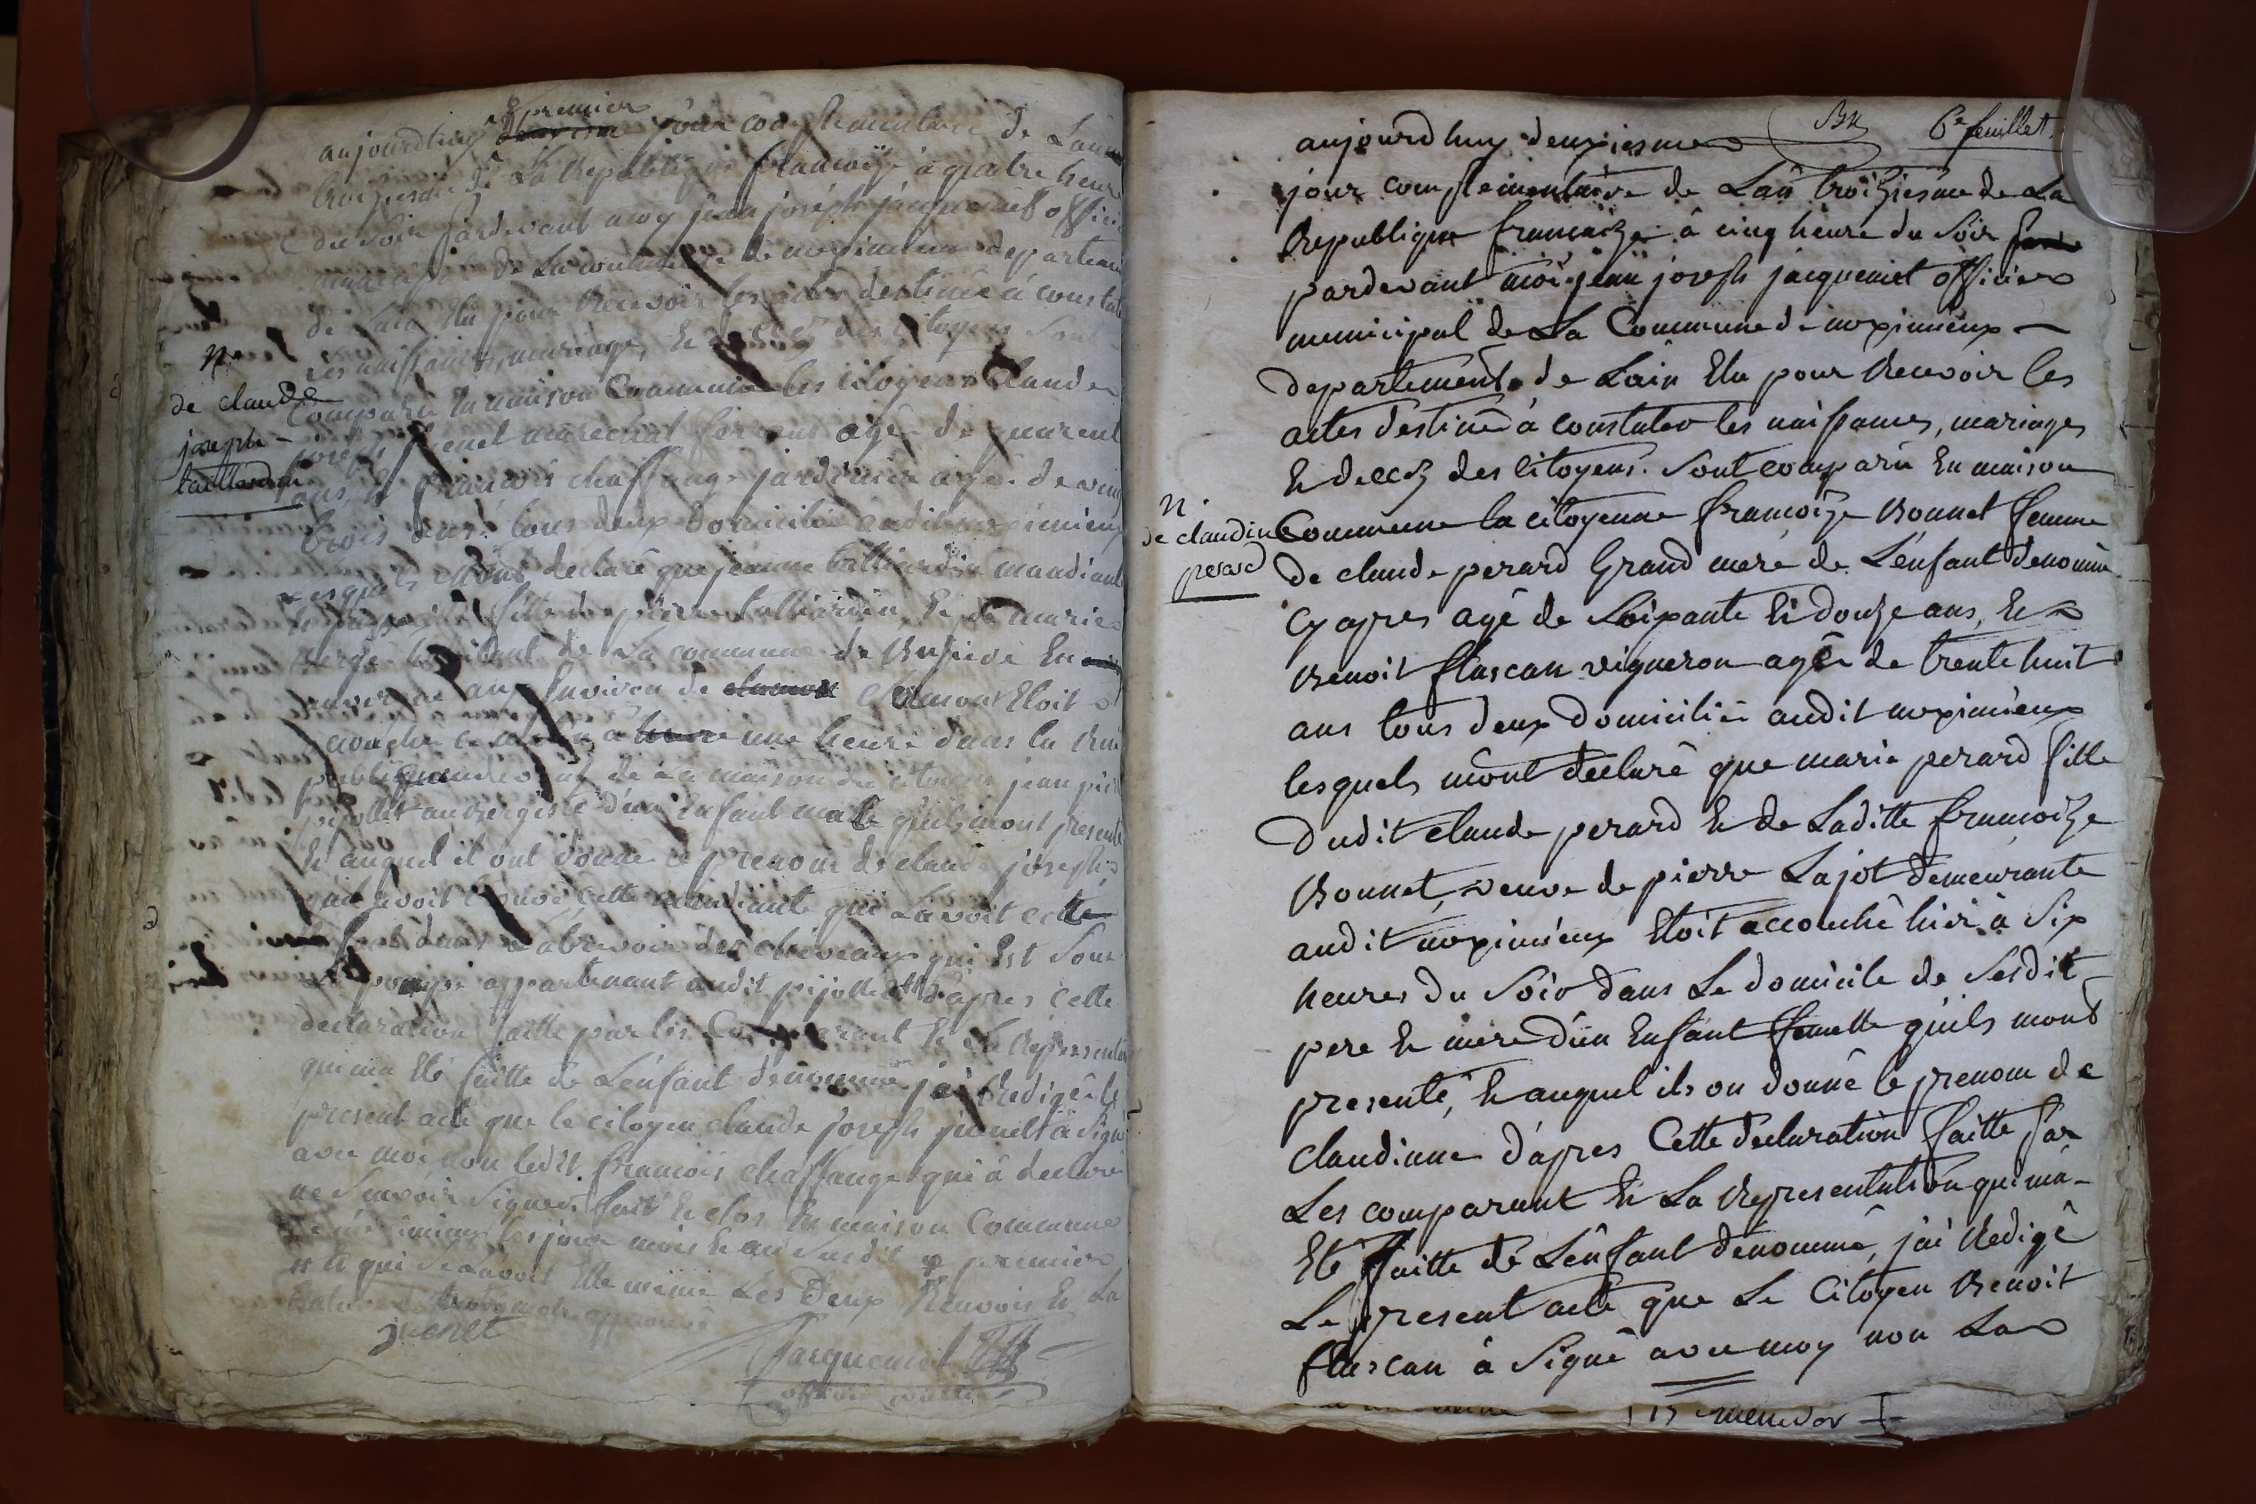 premier
aujourdhuy jour complementaire de Lan
troiziesme de La Republique francoise à quatre heure
du soir pardevant moy jean joseph jacquemet officier
municipal de La commune de meximieux departement
de Lain Elu pour Recevoir les actes destiné a constater
les naissances, mariages, et decez des Citoyens Sont
N.
de claude
joseph
taillardin
Comparu En maison Commune les citoyens Claude
joseph juenet marechal ferrant agé de quarent
ans, et francois chaffange jardinier agé de vingt
trois ans tous deux Domicilié audit meximieux
Lesquels m'ont declaré que jeanne talliardin mandiante
fille de pierre talliardin et de marie
de La commune de En
auvergne aux Environ de Etoit
accouché ce matin à une heure dans la Rue
publique audevant de La maison du citoyen jean
pijollet aubergiste d'un Enfant male quils mont presenté
Et auquel il ont donné le prenom de claude joseph
avoit trouvé cette mandiante qui Lavoit
dans Labrevoir des cheveaux qui Est Sous
pompe appartenant audit pijollet d'apres Cette
declaration faitte par les Comparant Et La Representation
qui ma Eté faitte de Lenfant denommé jai Redigé le
present acte que le citoyen claude joseph juenet à signé
avec moi non ledit francois chaffange qui à declaré
ne Scavoir Signer fait Et clos En maison Commune
de meximieux les jour mois Et an Susdit premier
Elle même Les Deux Renvois Et La
juenet
Jacquemet
6e feuillet
aujourd huy deuxiesme
jour complementaire de Lan troiziesme de La
Republique francoize à cinq heure du Soir
pardevant moi jean joseph jacquemet officier
municipal de La Commune de meximieux
departement de Lain Elu pour Recevoir les
actes destiné à constater les naissances, mariages
Et decez des citoyens. Sont comparu En maison
N.
de claudine
perard
Commune la citoyenne francoize Bonnet femme
de claude perard Grand mere de Lénfant denommé
cy apres agé de Soixante Et douze ans, Et
Benoit flascan vigneron agé de trente huit
ans tous deux domicilié audit meximieux
lesquels mont declaré que marie perard fille
dudit claude perard Et de Laditte francoize
Bonnet, veuve de pierre Lajot demeurante
audit meximieux Etoit accouché hier à Six
heures du Soir dans Le domicile de Sesdit
pere Et mere d'un Enfant femelle quils mont
presenté, Et auquel ils on donné le prenom de
claudinne d'apres Cette declaration faitte par
Les comparant Et La Representation qui ma
Eté faitte de Lénfant denommé, jai Redigé
Le present acte que Le Citoyen Benoit
flascan à Signé avec moy non La